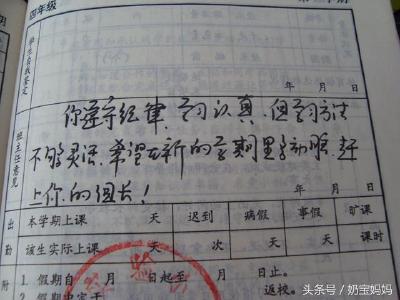 四年级
学生自我鉴定
年 月 日
你遵守纪律,学习认真,但学习方法
不够灵活,希望在新的学期里多动脑,赶
上你的组长!
班主任意见
年 月 日
出勤
本学期上课 天 迟到 病假 事假 旷课
该生实际上课 天 次 天 天 课时
附
1. 假期自 月 日起至 月 日止。
返校。
头条号 / 奶宝妈妈